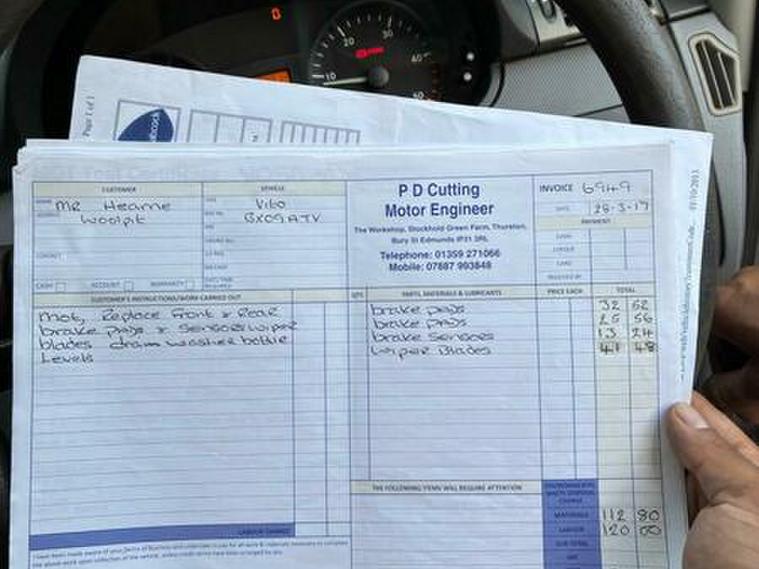 0
20
40
10
Page 1 of 1
babcock
CUSTOMER
VEHICLE
NAME MR Hearne
Woolpit
Vito
BX09ATV
P D Cutting
Motor Engineer
The Workshop, Stockhold Green Farm, Thurston,
Bury St Edmunds IP31 3RL
Telephone: 01359 271066
Mobile: 07887 993848
INVOICE 6949
DATE 28-3-17
PAYMENT
CONTACT
CASH
ACCOUNT
WARRANTY
CUSTOMER'S INSTRUCTIONS/WORK CARRIED OUT
QTY
PARTS, MATERIALS & LUBRICANTS
PRICE EACH
TOTAL
Mot, Replace front & Rear
brake pads & Sensors wiper
blades drain washer bottle
Levels
brake pads 32 52
brake pads 25 56
brake sensors 13 24
Wiper Blades 41 48
THE FOLLOWING ITEMS WILL REQUIRE ATTENTION
MATERIALS 112 80
LABOUR 120 00
SUB TOTAL
VAT
LABOUR CHARGE